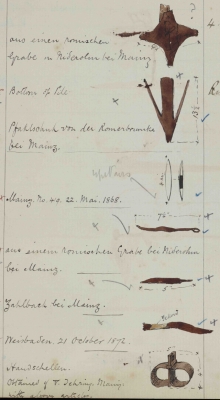 aus einem römischen
Grabe in Niderolm bei Mainz
Bottom of Pile
Pfahlschuh von der Romerbrucke
bei Mainz
Mainz. No. 40. 22. Mai. 1868.
aus einem romischen Grabe bei Niderolm
bei Mainz.
Zahlbach bei Mainz.
Weisbaden. 21 October 1872.
Handschellen.
Obtained of T. Dehring Mainz.
with above articles.